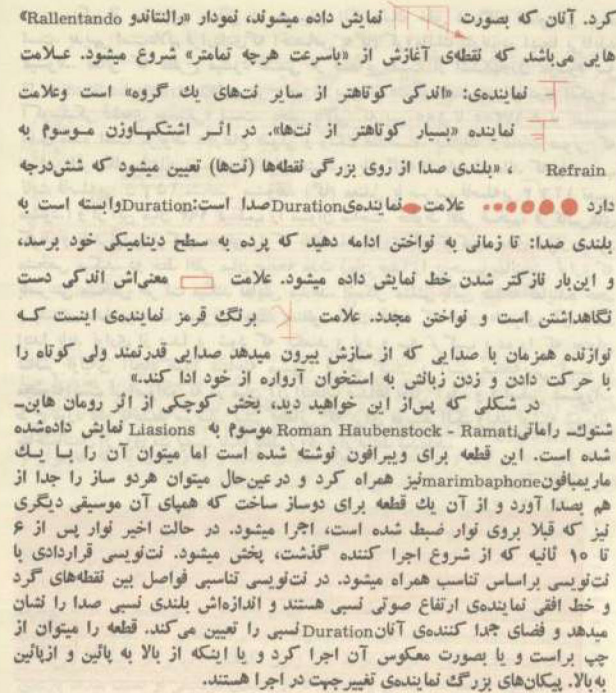 کرد. آنان که بصورت نمایش داده میشوند، نمودار «رالنتاندو Rallentando»
هایی می‌باشد که نقطه‌ی آغازش از «باسرعت هرچه تمامتر» شروع میشود. عـلامت
نماینده‌ی: «اندکی کوتاهتر از سایر نت‌های یك گروه» است وعلامت
نماینده «بسیار کوتاهتر از نت‌ها». در اثـر اشتکهـاوزن مـوسوم به
Refrain ، «بلندی صدا از روی بزرگی نقطه‌ها (نت‌ها) تعیین میشود که شش‌درجه
دارد علامت نماینده‌ی Duration صدا است: Duration وابسته است به
بلندی صدا: تا زمانی به نواختن ادامه دهید که پرده به سطح دینامیکی خود برسد،
و این‌بار نازکتر شدن خط نمایش داده میشود. علامت معنی‌اش اندکی دست
نگاهداشتن است و نواختن مجدد. علامت برنگ قرمز نماینده‌ی اینست کـه
نوازنده همزمان با صدایی که از سازش بیرون میدهد صدایی قدرتمند ولی کوتاه را
با حرکت دادن و زدن زبانش به استخوان آرواره از خود ادا کند.»
در شکلی که پس‌از این خواهید دید، بخش کوچکی از اثر رومان هابن‌ـ
شتوك‌ـ راماتی Roman Haubenstock - Ramati موسوم به Liasions نمایش داده‌شده
شده است. این قطعه برای ویبرافون نوشته شده است اما میتوان آن را بـا یـك
ماریمبافون marimbaphone نیز همراه کرد و درعین‌حال میتوان هردو ساز را جدا از
هم بصدا آورد و از آن یك قطعه برای دوساز ساخت که همپای آن موسیقی دیگری
نیز که قبلا بروی نوار ضبط شده است، اجرا میشود. در حالت اخیر نوار پس از ۶
تا ۱۰ ثانیه که از شروع اجرا کننده گذشت، پخش میشود. نت‌نویسی قراردادی با
نت‌نویسی براساس تناسب همراه میشود. در نت‌نویسی تناسبی فواصل بین نقطه‌های گرد
و خط افقی نماینده‌ی ارتفاع صوتی نسبی هستند و اندازه‌اش بلندی نسبی صدا را نشان
میدهد و فضای جدا کننده‌ی آنان Duration نسبی را تعیین می‌کند. قطعه را میتوان از
چپ براست و یا بصورت معکوس آن اجرا کرد و یا اینکه از بالا به پائین و ازپائین
به‌بالا. پیکان‌های بزرگ نماینده‌ی تغییرجهت در اجرا هستند.